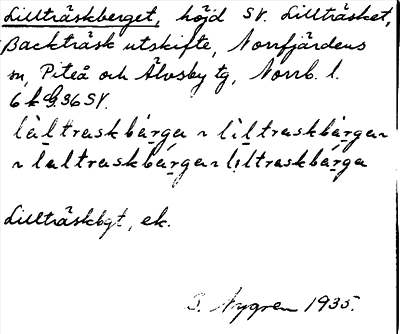 Lillträskberget, höjd SV. Lillträsket,
Backträsk utskifte, Norrfjärdens
sn, Piteå och Älvsby tg, Norrb. l.
6 k G. 36 SV.
lìltraskbárga ~ lìltraskbárga ~
~ lìltraskbárga ~ liltraskbárga
Lillträskbgt, ek.
S. Nygren 1935.